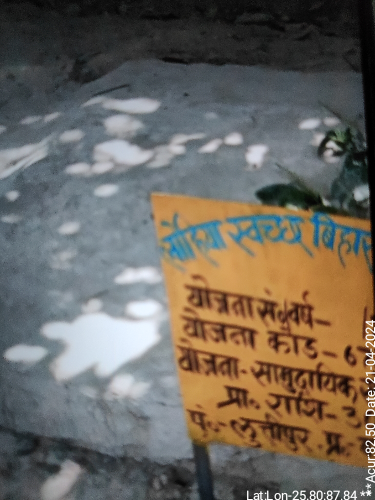 लोहिया स्वच्छ बिहार
योजना सं०/वर्ष-
योजना कोड - 6
योजना - सामुदायिक
प्रा० राशि - 3
पं०- लुत्तीपुर, प्र०
Lat:Lon-25.80:87.84 ***
Acur:82.50 Date: 21-04-2024